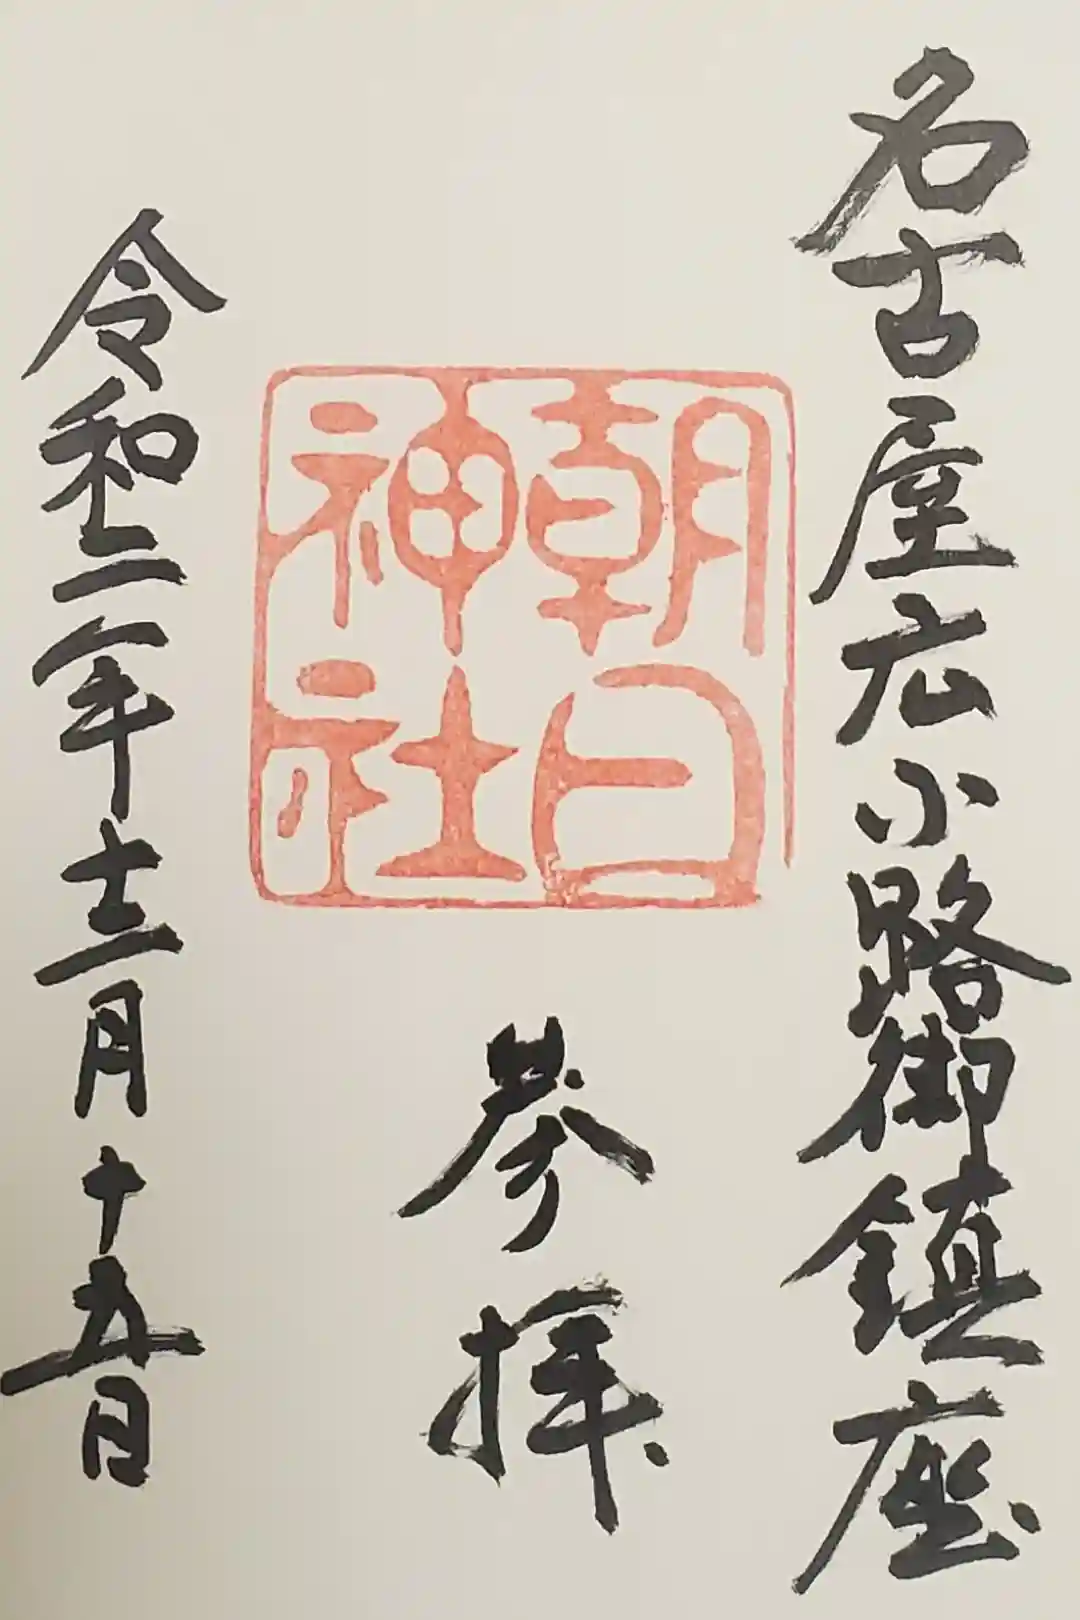 名古屋広小路御鎮座
朝日
神社
参拝
令和二年十二月十五日